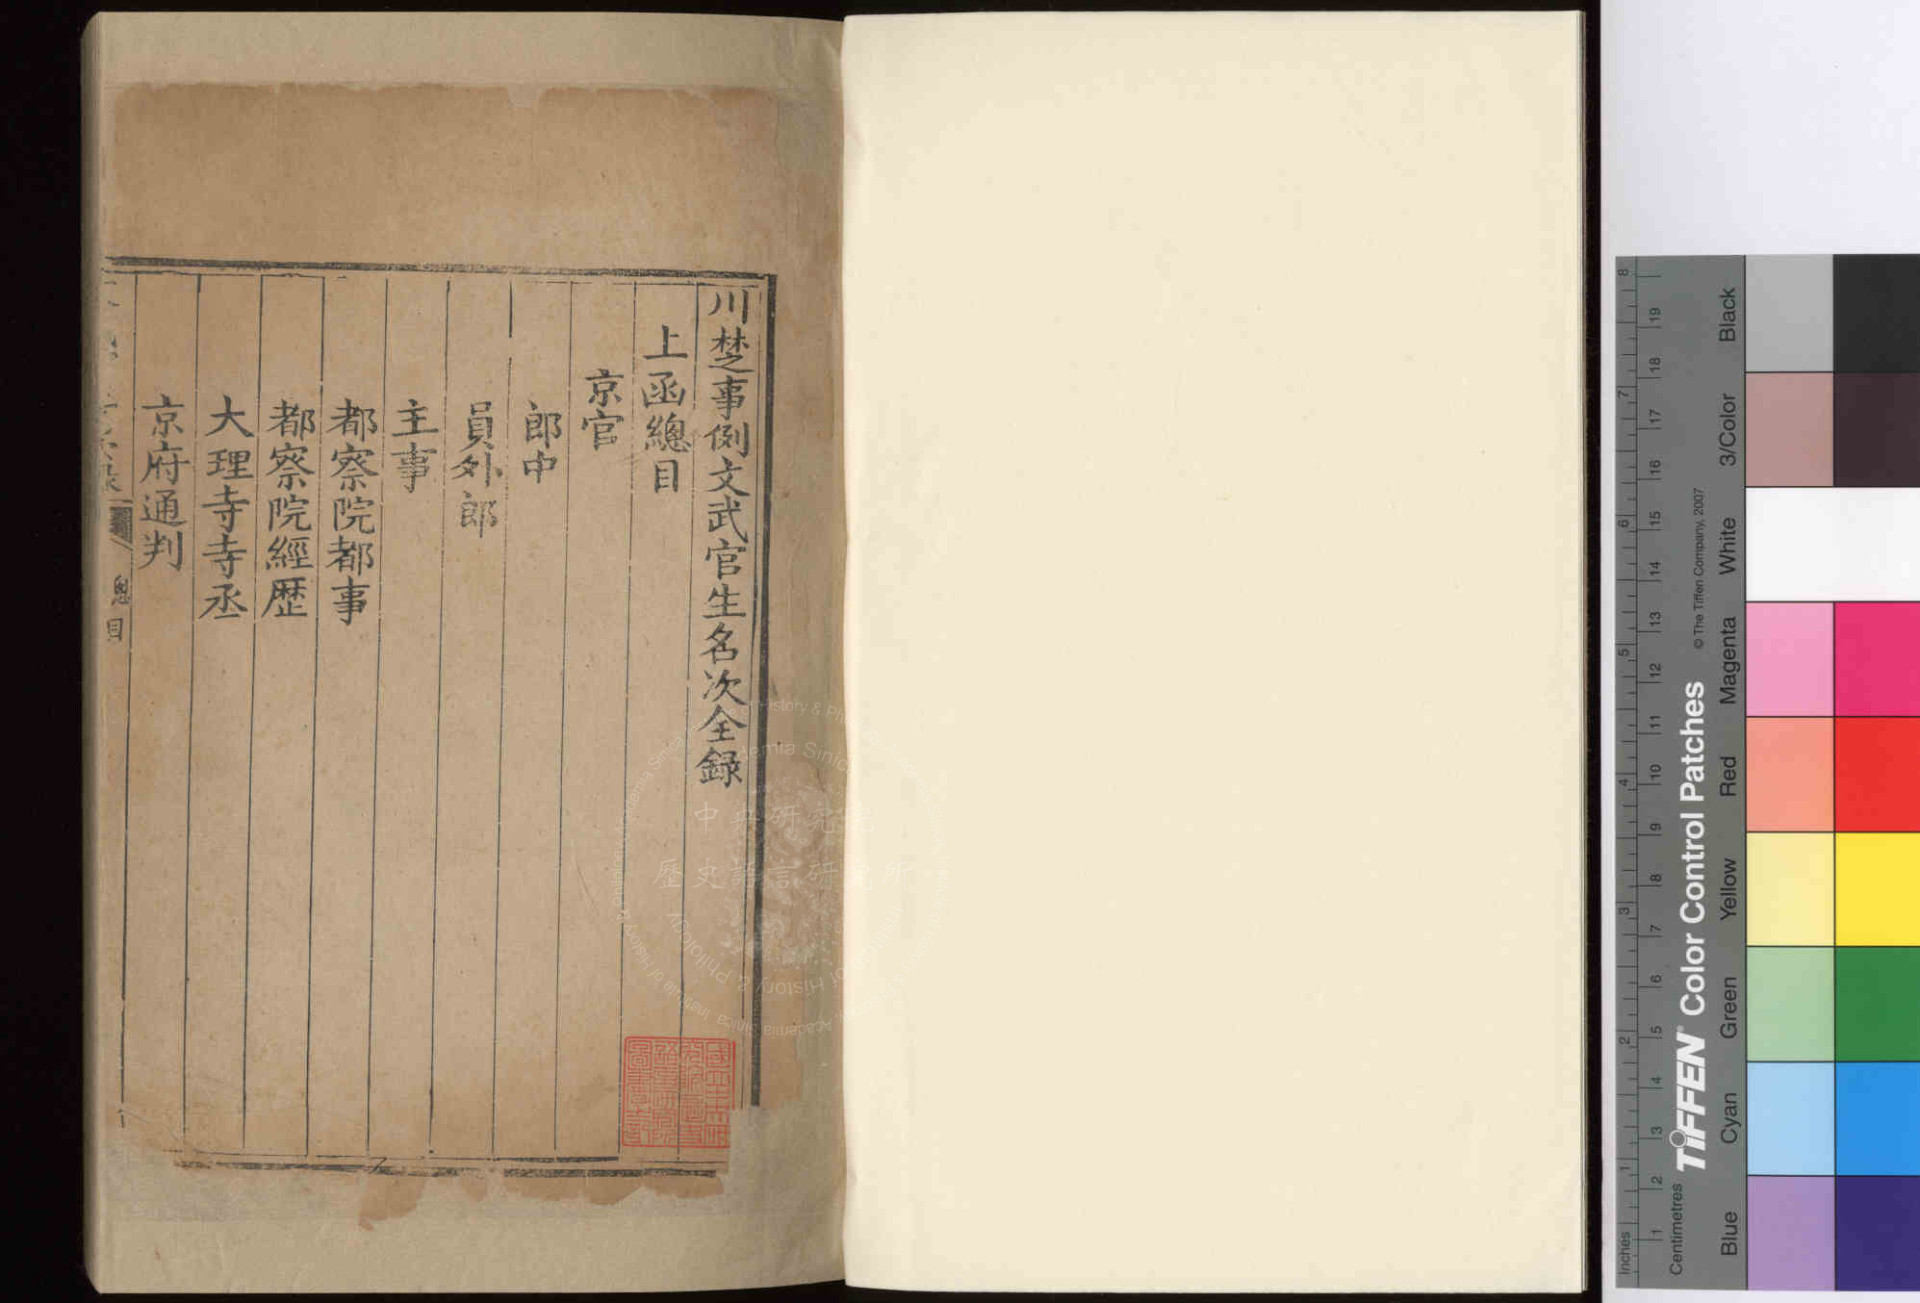 川楚事例文武官生名次全錄
上函總目
京官
郎中
員外郎
主事
都察院都事
都察院經歷
大理寺寺丞
京府通判
總目
中央研究院
歷史語言研究所
Inches
Centimetres
TIFFEN Color Control Patches
© The Tiffen Company, 2007
Blue
Cyan
Green
Yellow
Red
Magenta
White
3/Color
Black